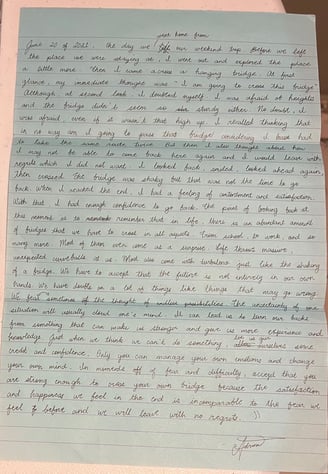 went home from
June 20 of 2021. The day we our weekend trip. Before we left
the place we were staying at, I went out and explored the place
a little more. Then I came across a hanging bridge. At first
glance, my immediate thought was "I am going to cross this bridge"
Although at second look I doubted myself. I was afraid of heights
and the bridge didn't seem so sturdy either. No doubt, I
was afraid, even if it wasn't that high. I recalled thinking that
in no way am I going to pass that bridge considering I have had
to take the same route twice. But then I also thought about how
I may not be able to come back here again and I would leave with
regrets which I did not want. I looked back, smiled, looked ahead again
then crossed. The bridge was shaky but that was not the time to go
back. When I reached the end, I had a feeling of contentment and satisfaction.
With that I had enough confidence to go back. The point of looking back at
this moment is to remember that in life, there is an abundant amount
of bridges that we have to cross in all aspects. From school, to work, and so
many more. Most of them even come as a surprise. Life throws massive,
unexpected curveballs at us. Most also come with turbulence just like the shaking
of a bridge. We have to accept that the future is not entirely in our own
hands. We have doubts in a lot of things like things that may go wrong.
We fear sometimes of the thought of endless possibilities. The uncertainty of one
situation will usually cloud one's mind. It can lead us to turn our backs
from something that can make us stronger and give us more experience and
knowledge. Just when we think we can't do something, let us give ourselves some
credit and confidence. Only you can manage your own emotions and change
your own mind. In moments of fear and difficulty, accept that you
are strong enough to cross your own bridge because the satisfaction
and happiness we feel in the end is incomparable to the fear we
feel before and we will leave with no regrets. :)